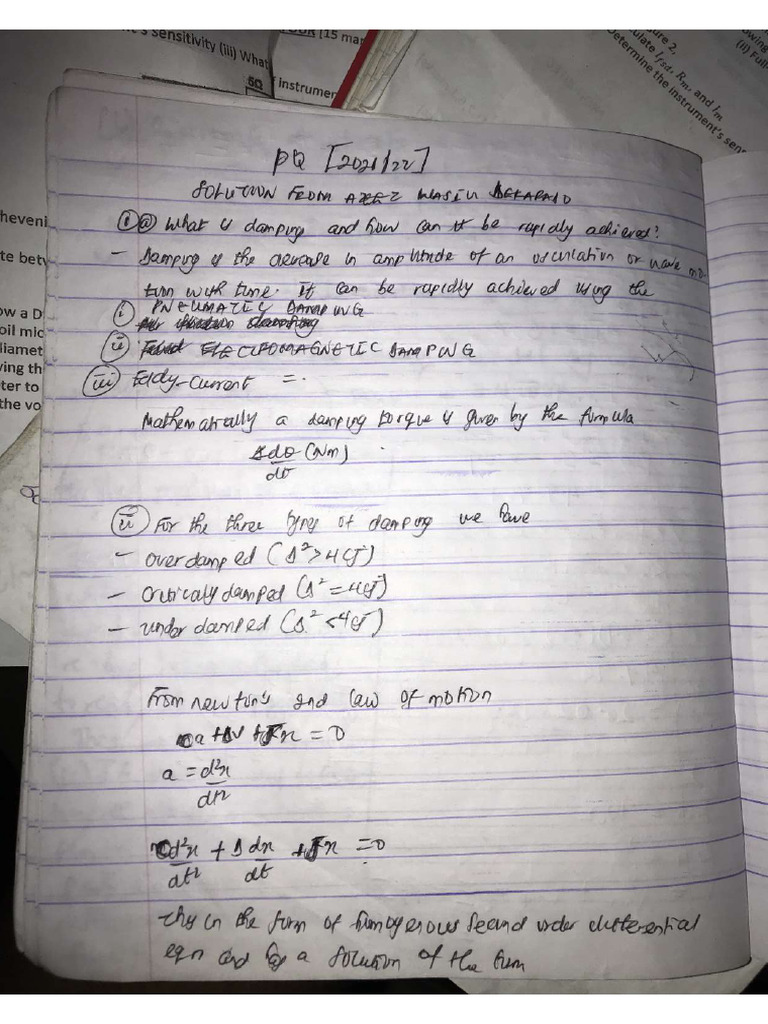 's sensitivity (iii) What
[15 mar
5Ω
instrumen
ure 2,
ulate Ifsd, Rm, and Im
etermine the instrument's sens
owing
(ii) Full-
heveni
te betw
ow a D
oil mic
liamet
ving th
ter to
the vo
PQ [2021/22]
SOLUTION FROM WASIU
① ⓐ What is damping and how can it be rapidly achieved?
- Damping is the decrease in amplitude of an osculation or wave mo
tion with time. It can be rapidly achieved using the
(i) PNEUMATIC DAMPING
(ii) ELECTROMAGNETIC DAMPING
(iii) Eddy-current =.
Mathematically a damping torque is given by the formula
sdθ/dt (Nm)
(ii) For the three types of damping we have
- Overdamped (s²>4CJ)
- Critically damped (s²=4CJ)
- under damped (s²<4CJ)
From newton's 2nd law of motion
Ca + sv + Jx = 0
a = d²x/dt²
Cd²x/dt² + s dx/dt + Jx = 0
This in the form of homogenous second order differential
eqn and has a solution of the form